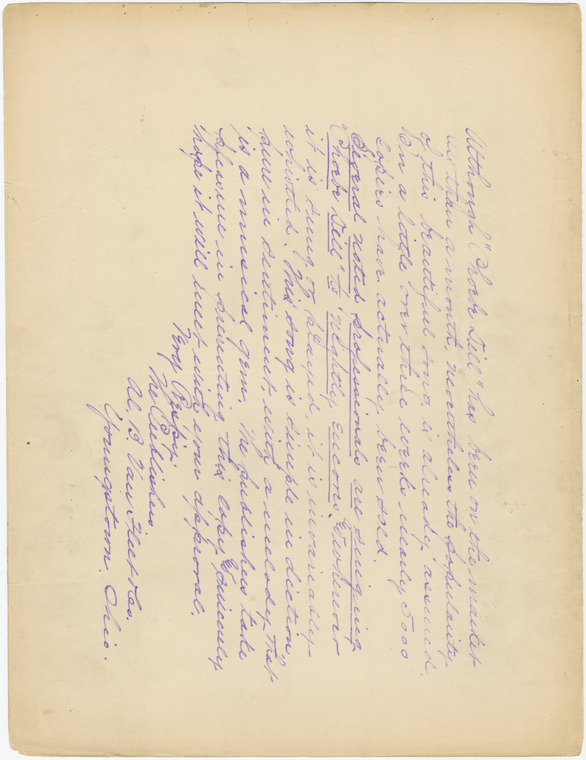 Although "Phoebe Dill" has been on the market
less than a month, nevertheless the popularity
of this beautiful song is already assured.
In a little over three weeks nearly 5000
copies have actually been sold.
Several noted professionals are singing
"Phoebe Dill" to Nightly encores. Wherever
it is sung, or played, it is invariably
whistled. This song is simple in diction
pure in sentiment, with a melody that
is a musical gem. The publishers take
pleasure in presenting this copy, & sincerely
hope it will meet with your approval.
Very Resp'y
The Publishers
W. B. Van Fleet & Co.
Youngstown, Ohio.